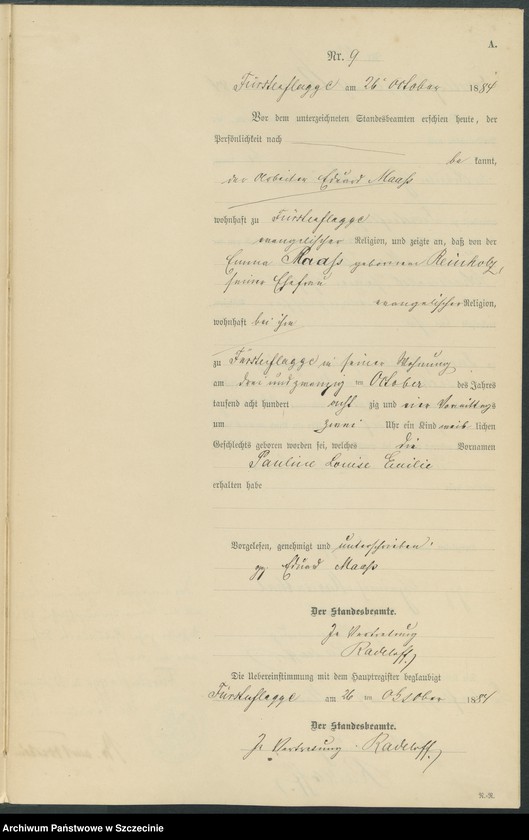 A.
Nr. 9
Fürstenflagge am 26t October 1884
Vor dem unterzeichneten Standesbeamten erschien heute, der
Persönlichkeit nach
be kannt,
der Arbeiter Eduard Maaß
wohnhaft zu Fürstenflagge
evangelischer Religion, und zeigte an, daß von der
Emma Maaß geborenen Reinholz,
seiner Ehefrau
evangelischer Religion,
wohnhaft bei ihm
zu Fürstenflagge in seiner Wohnung
am drei und zwanzig ten October des Jahres
tausend acht hundert acht zig und vier Vormittags
um zwei Uhr ein Kind weib lichen
Geschlechts geboren worden sei, welches die Vornamen
Pauline Louise Emilie
erhalten habe
Vorgelesen, genehmigt und unterschrieben
gez. Eduard Maaß
Der Standesbeamte.
In Vertretung
Radeloff
Die Uebereinstimmung mit dem Hauptregister beglaubigt
Fürstenflagge am 26 ten October 1884
Der Standesbeamte.
In Vertretung Radeloff
N.-R.
Archiwum Państwowe w Szczecinie